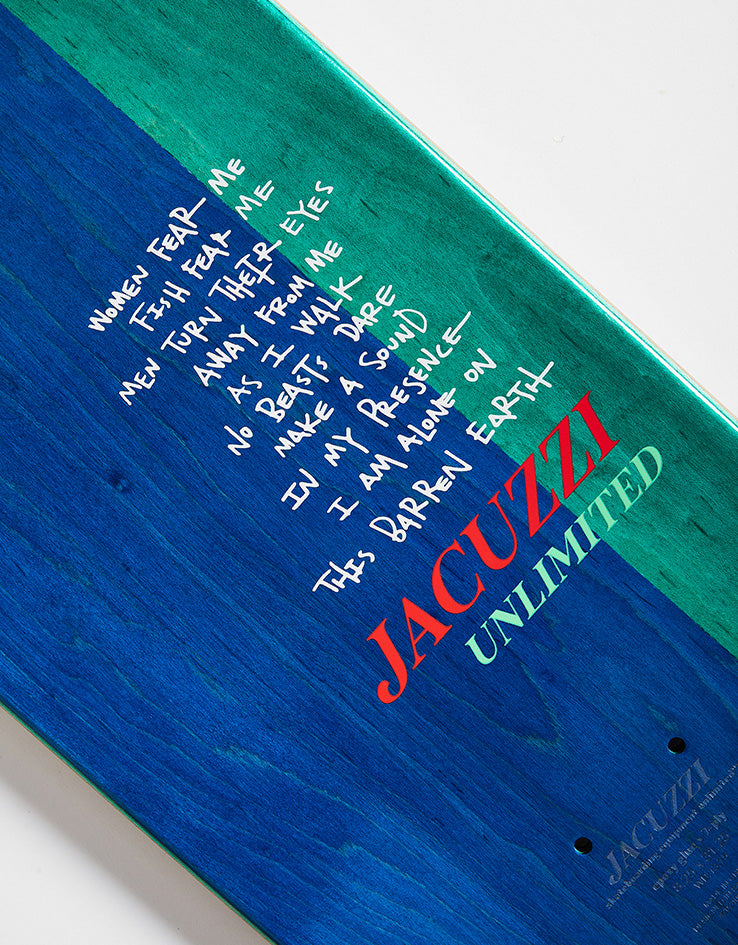 WOMEN FEAR ME
FISH FEAR ME
MEN TURN THEIR EYES
AWAY FROM ME
AS I WALK
NO BEASTS DARE
MAKE A SOUND
IN MY PRESENCE
I AM ALONE ON
THIS BARREN EARTH
JACUZZI
UNLIMITED
JACUZZI
skateboarding component
epoxy glued 7-ply